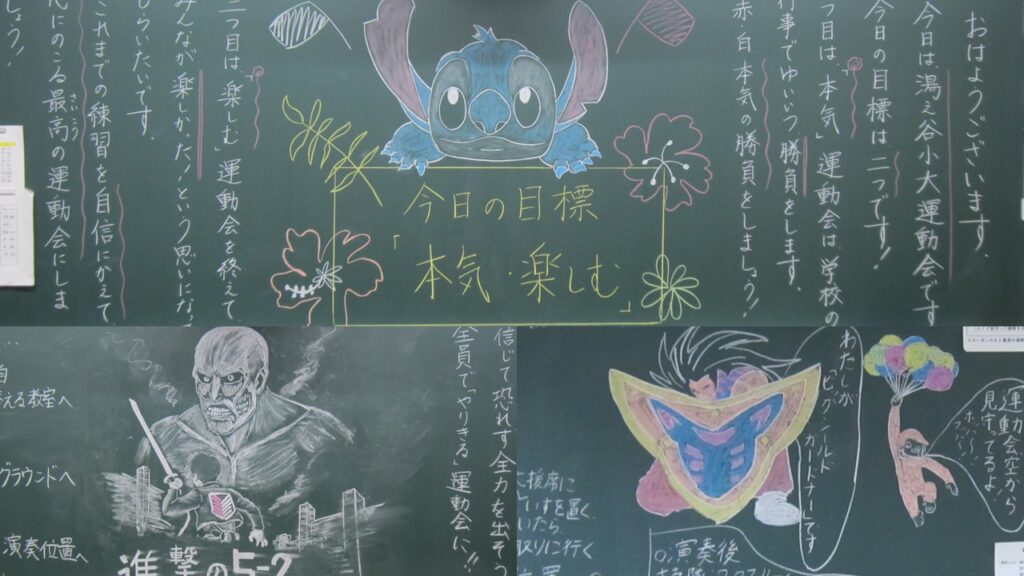 おはようございます。
今日は湯之谷小大運動会です
今日の目標は二つです！
つ目は「本気」運動会は、学校の
行事でゆいいつ勝負をします。
赤白本気の勝負をしましょう！
今日の目標
「本気・楽しむ」
二つ目は「楽しむ」運動会を終えて、
みんなが楽しかった！という思いになっ
もらいたいです。
これまでの練習を自信にかえて、
心にのこる最高の運動会にしま
しょう！
信じて恐れず全力を出そう
全員で「やりきる」運動会に!!
える教室へ
グラウンドへ
演奏位置へ
進撃の5-2
わたしが
「ビクシールド
ガードナー」です
運動会空から
見守ってるよ
援席に
いすを置く
いたら
取りに行く
○演奏後